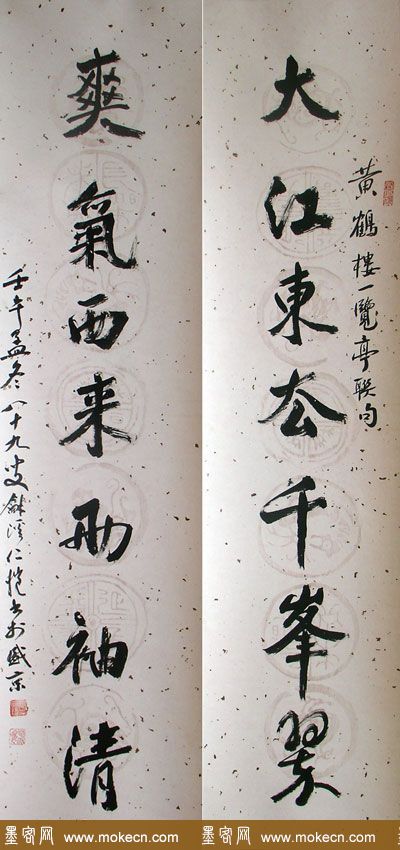 黃鶴樓一覽亭联句
大江東去千峯翠
爽氣西来两袖清
壬午孟冬八十九叟龢溪仁愷书於盛京
墨客网 www.mokecn.com
墨客网 www.mokecn.com